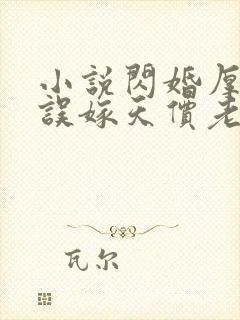 小說閃婚厚
誤嫁天價老
瓦尔